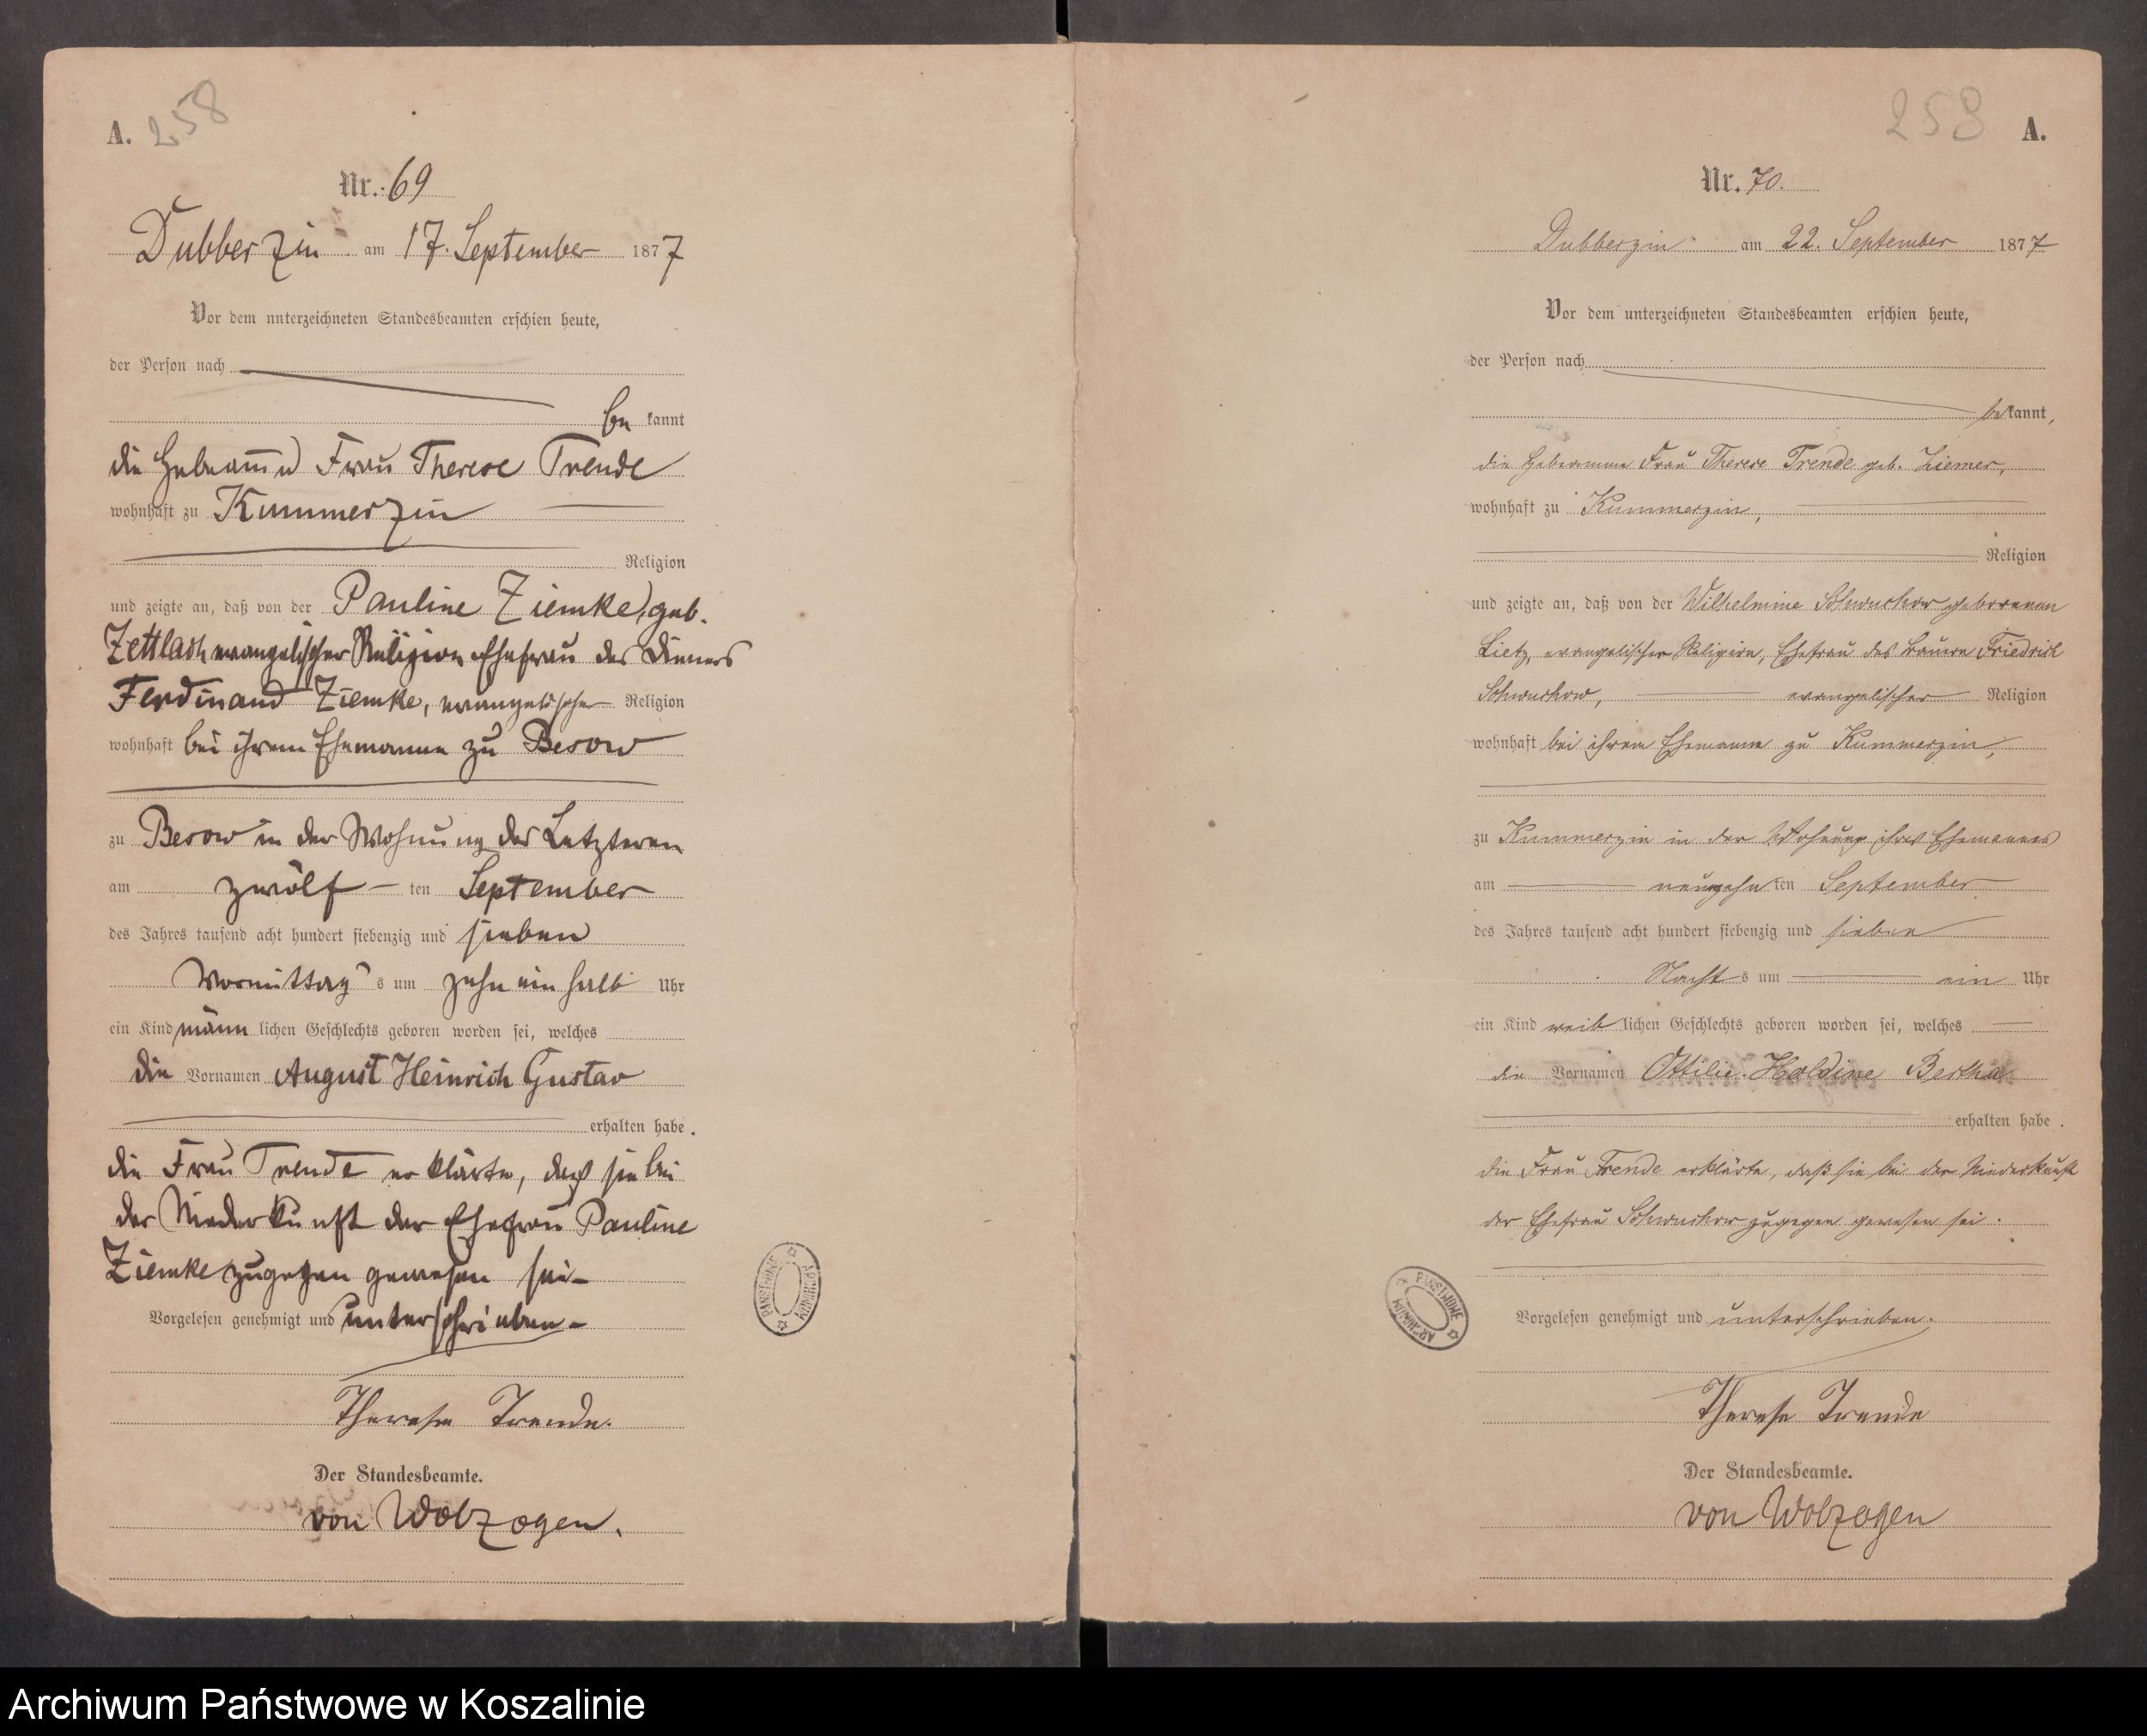 A. 258
Nr. 69
Dubberzin am 17. September 1877
Vor dem nnterzeichneten Standesbeamten erschien heute,
der Person nach
be kannt
die Hebamme Frau Therese Trende
wohnhaft zu Kummerzin
Religion
und zeigte an, daß von der Pauline Ziemke, geb.
Zettlach evangelischer Religion Ehefrau des Dieners
Ferdinand Ziemke, evangelischer Religion
wohnhaft bei ihrem Ehemanne zu Besow
zu Besow in der Wohnung des Letzteren
am zwölf ten September
des Jahres tausend acht hundert siebenzig und sieben
Vormittag s um zehn ein halb Uhr
ein Kind männ lichen Geschlechts geboren worden sei, welches
die Vornamen August Heinrich Gustav
erhalten habe.
die Frau Trende erklärte, daß sie bei
der Niederkunft der Ehefrau Pauline
Ziemke zugegen gewesen sei
Vorgelesen genehmigt und unterschrieben
Therese Trende.
Der Standesbeamte.
von Wolzogen.
ARCHIWUM PAŃSTWOWE
258 A.
Nr. 70.
Dubberzin am 22. September 1877
Vor dem unterzeichneten Standesbeamten erschien heute,
der Person nach
be kannt,
die Hebeamme Frau Therese Trende geb. Ziemer,
wohnhaft zu Kummerzin,
Religion
und zeigte an, daß von der Wilhelmine Schwuchow geborenen
Lietz, evangelischer Religion, Ehefrau des Bauern Friedrich
Schwuchow, evangelischer Religion
wohnhaft bei ihrem Ehemanne zu Kummerzin,
zu Kummerzin in der Wohnung ihres Ehemannes
am neunzehn ten September
des Jahres tausend acht hundert siebenzig und sieben
Nacht s um ein Uhr
ein Kind weib lichen Geschlechts geboren worden sei, welches
die Vornamen Ottilie Holdine Bertha
erhalten habe.
die Frau Trende erklärte, daß sie bei der Niederkunft
der Ehefrau Schwuchow zugegen gewesen sei.
ARCHIWUM PAŃSTWOWE
Vorgelesen genehmigt und unterschrieben.
Therese Trende
Der Standesbeamte.
von Wolzogen
Archiwum Państwowe w Koszalinie